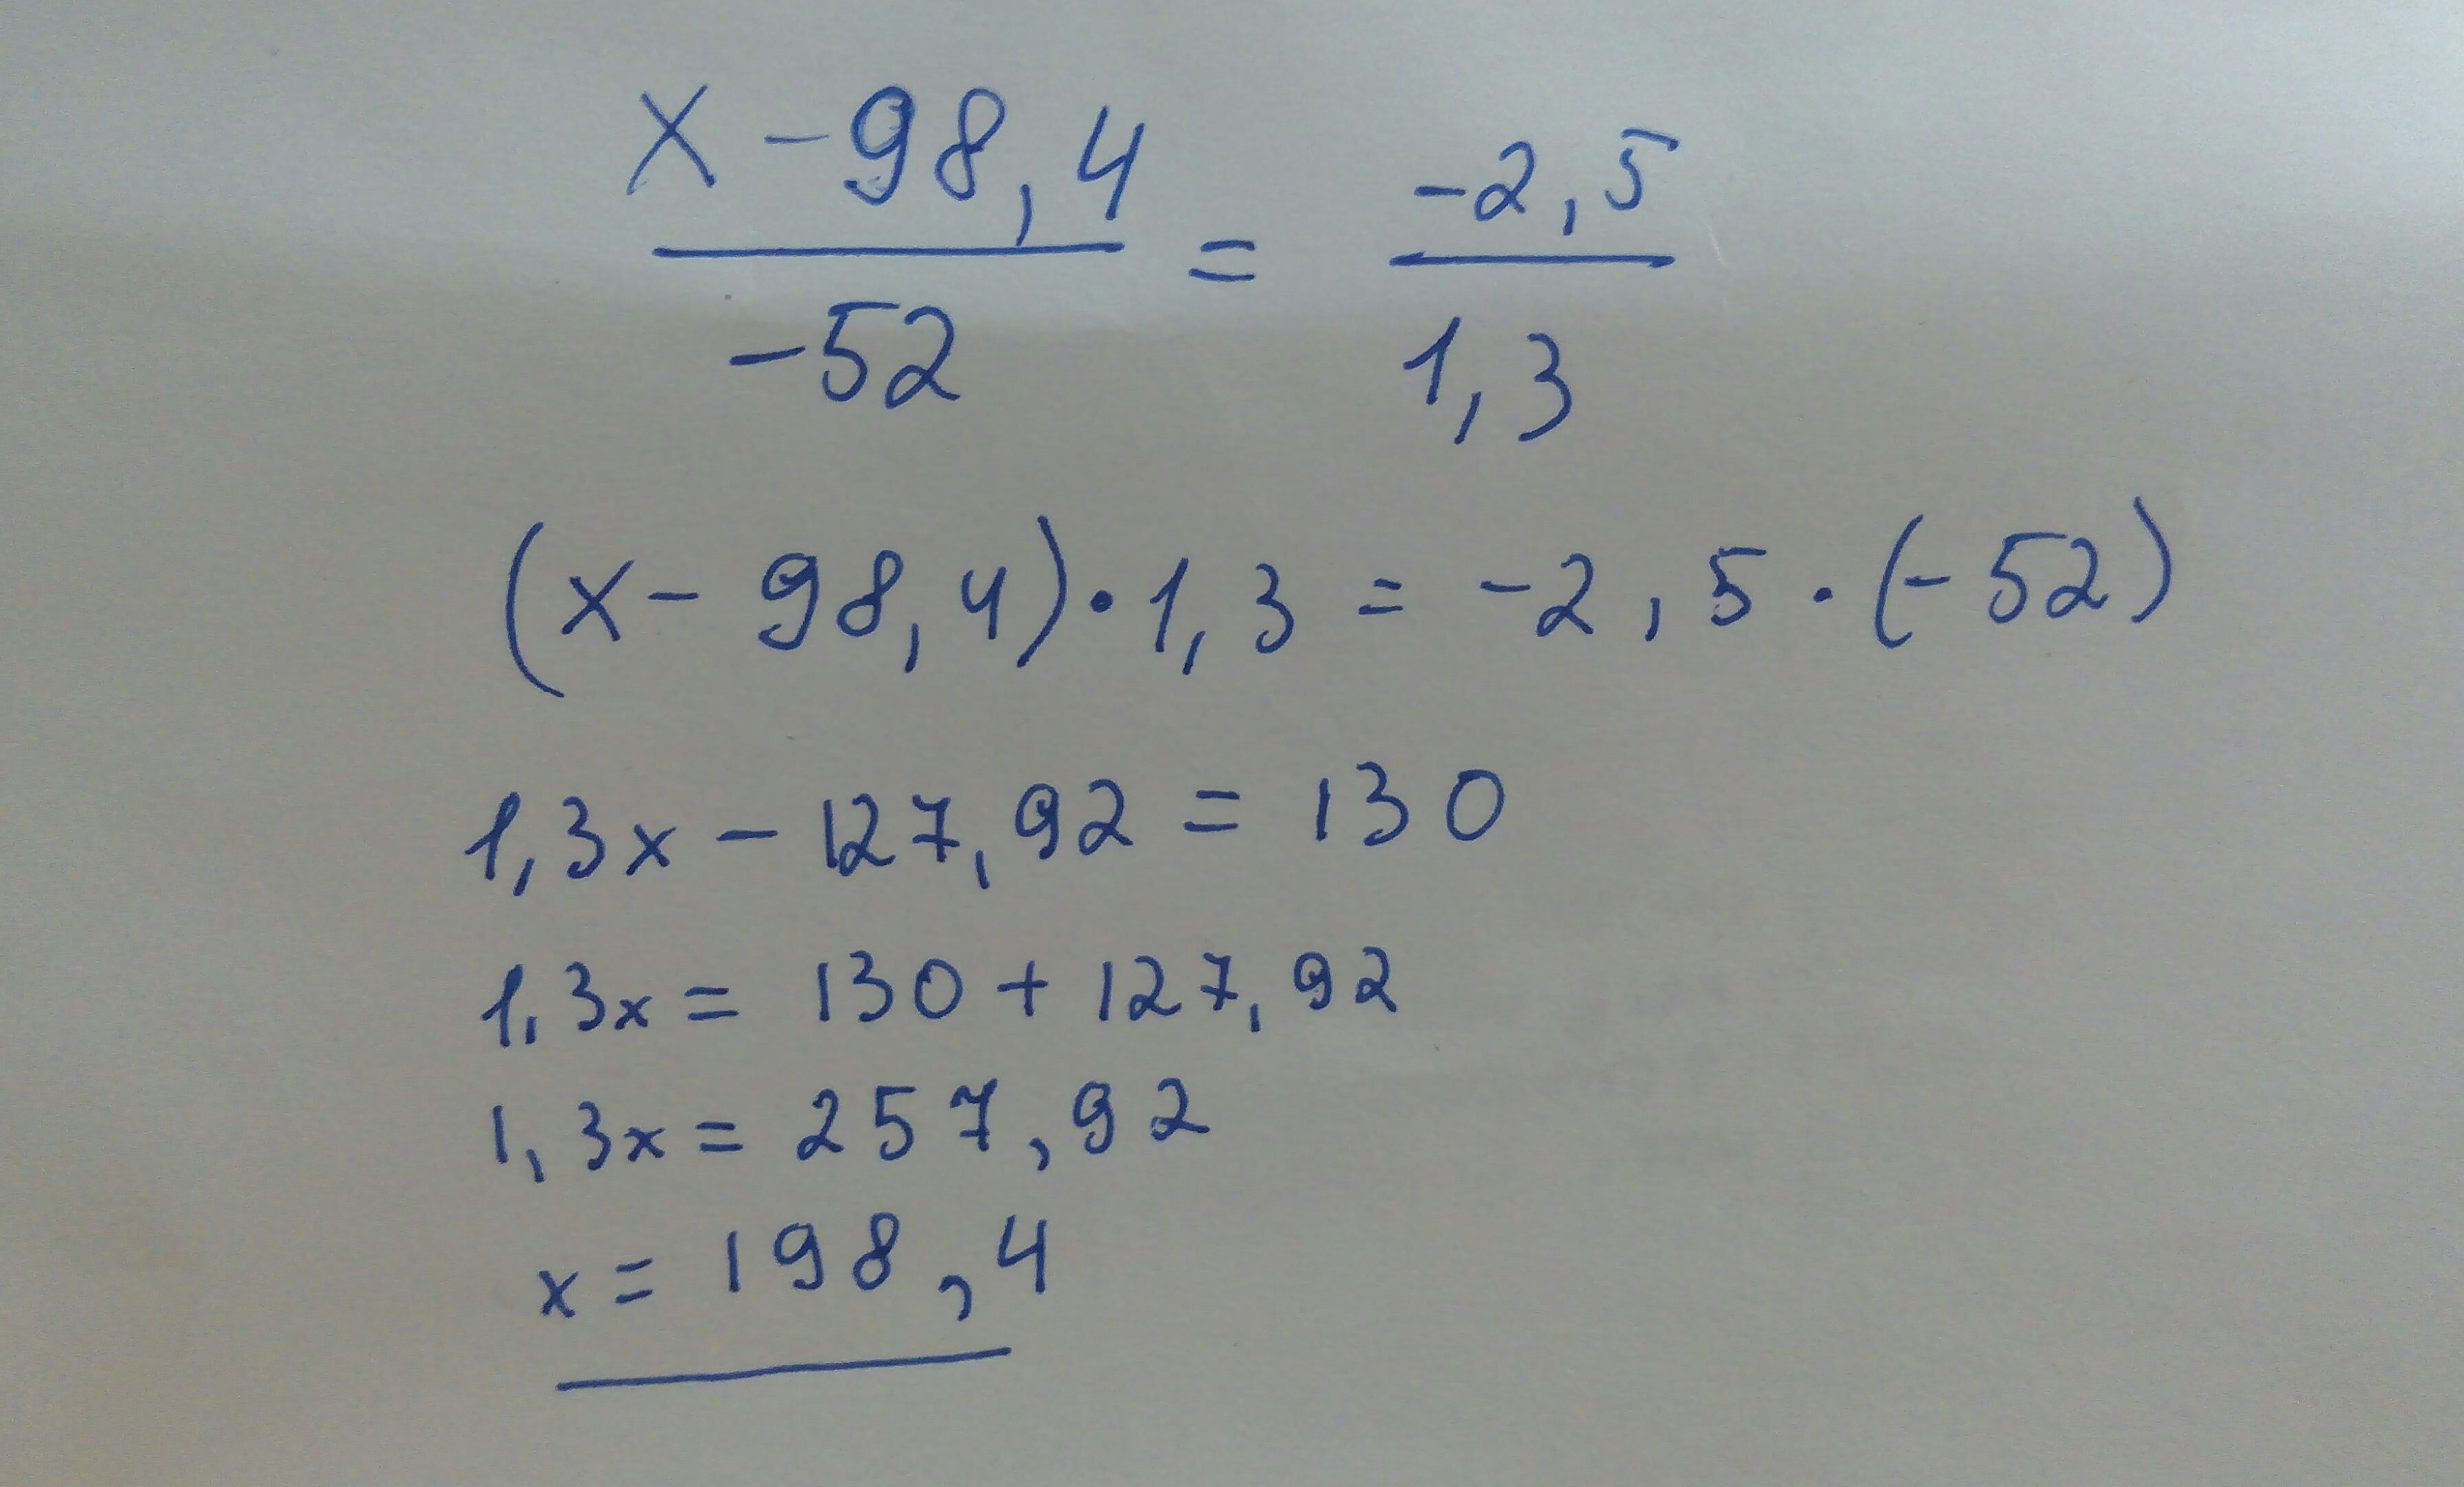 x - 98,4 / -52 = -2,5 / 1,3
(x - 98,4) · 1,3 = -2,5 · (-52)
1,3x - 127,92 = 130
1,3x = 130 + 127,92
1,3x = 257,92
x = 198,4